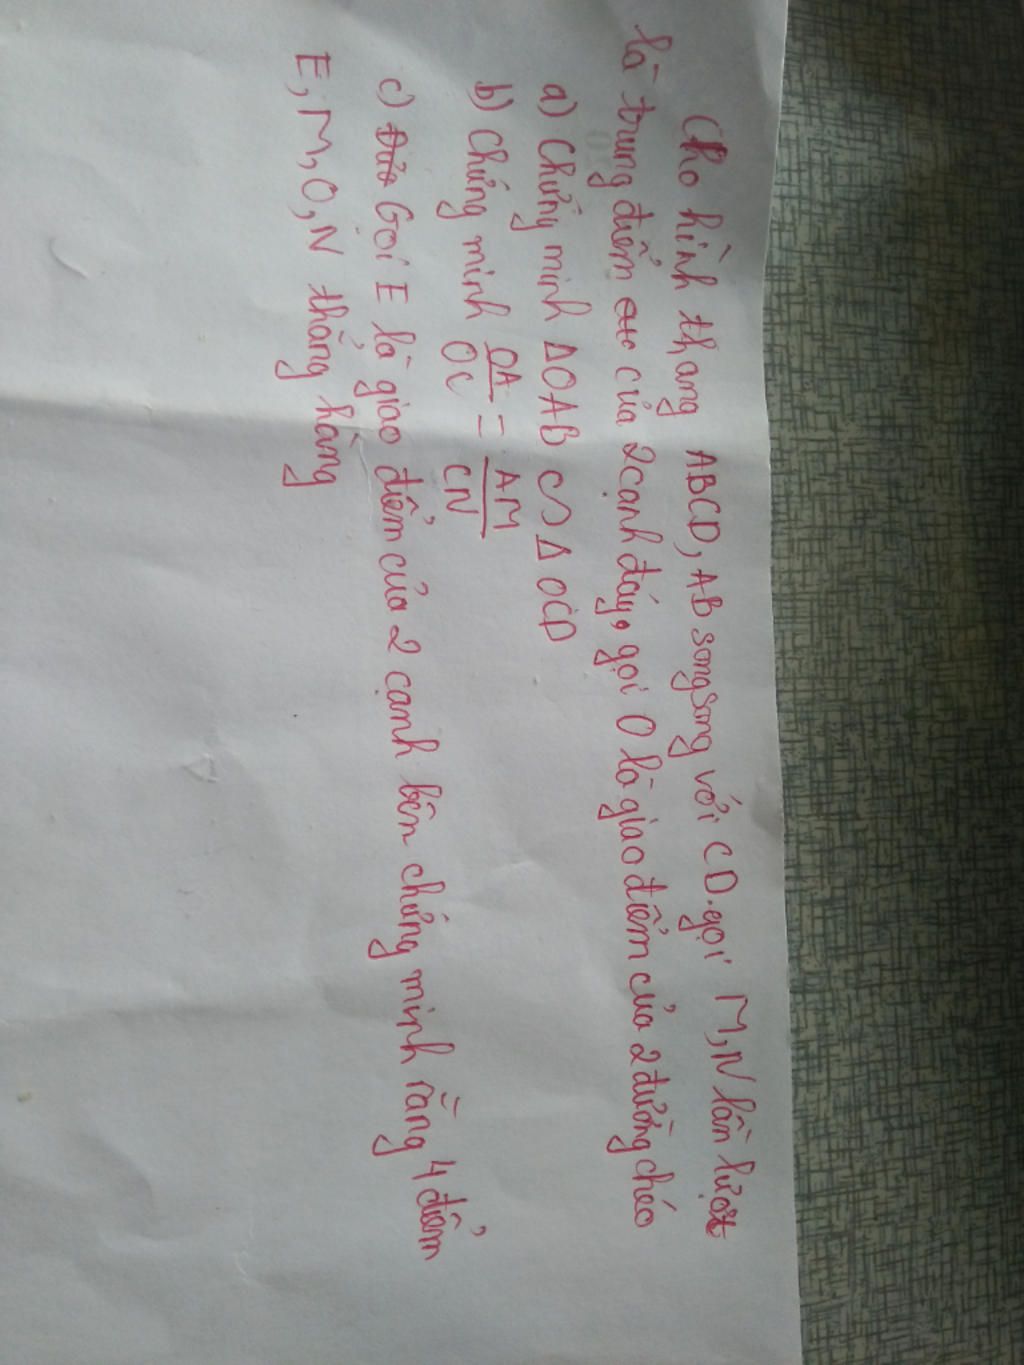 Cho hình thang ABCD, AB song song với CD. gọi M, N lần lượt
là trung điểm của 2 cạnh đáy, gọi O là giao điểm của 2 đường chéo
a) Chứng minh ΔOAB ∽ ΔOCD
b) Chứng minh OA/OC = AM/CN
c) Gọi E là giao điểm của 2 cạnh bên chứng minh rằng 4 điểm
E, M, O, N thẳng hàng